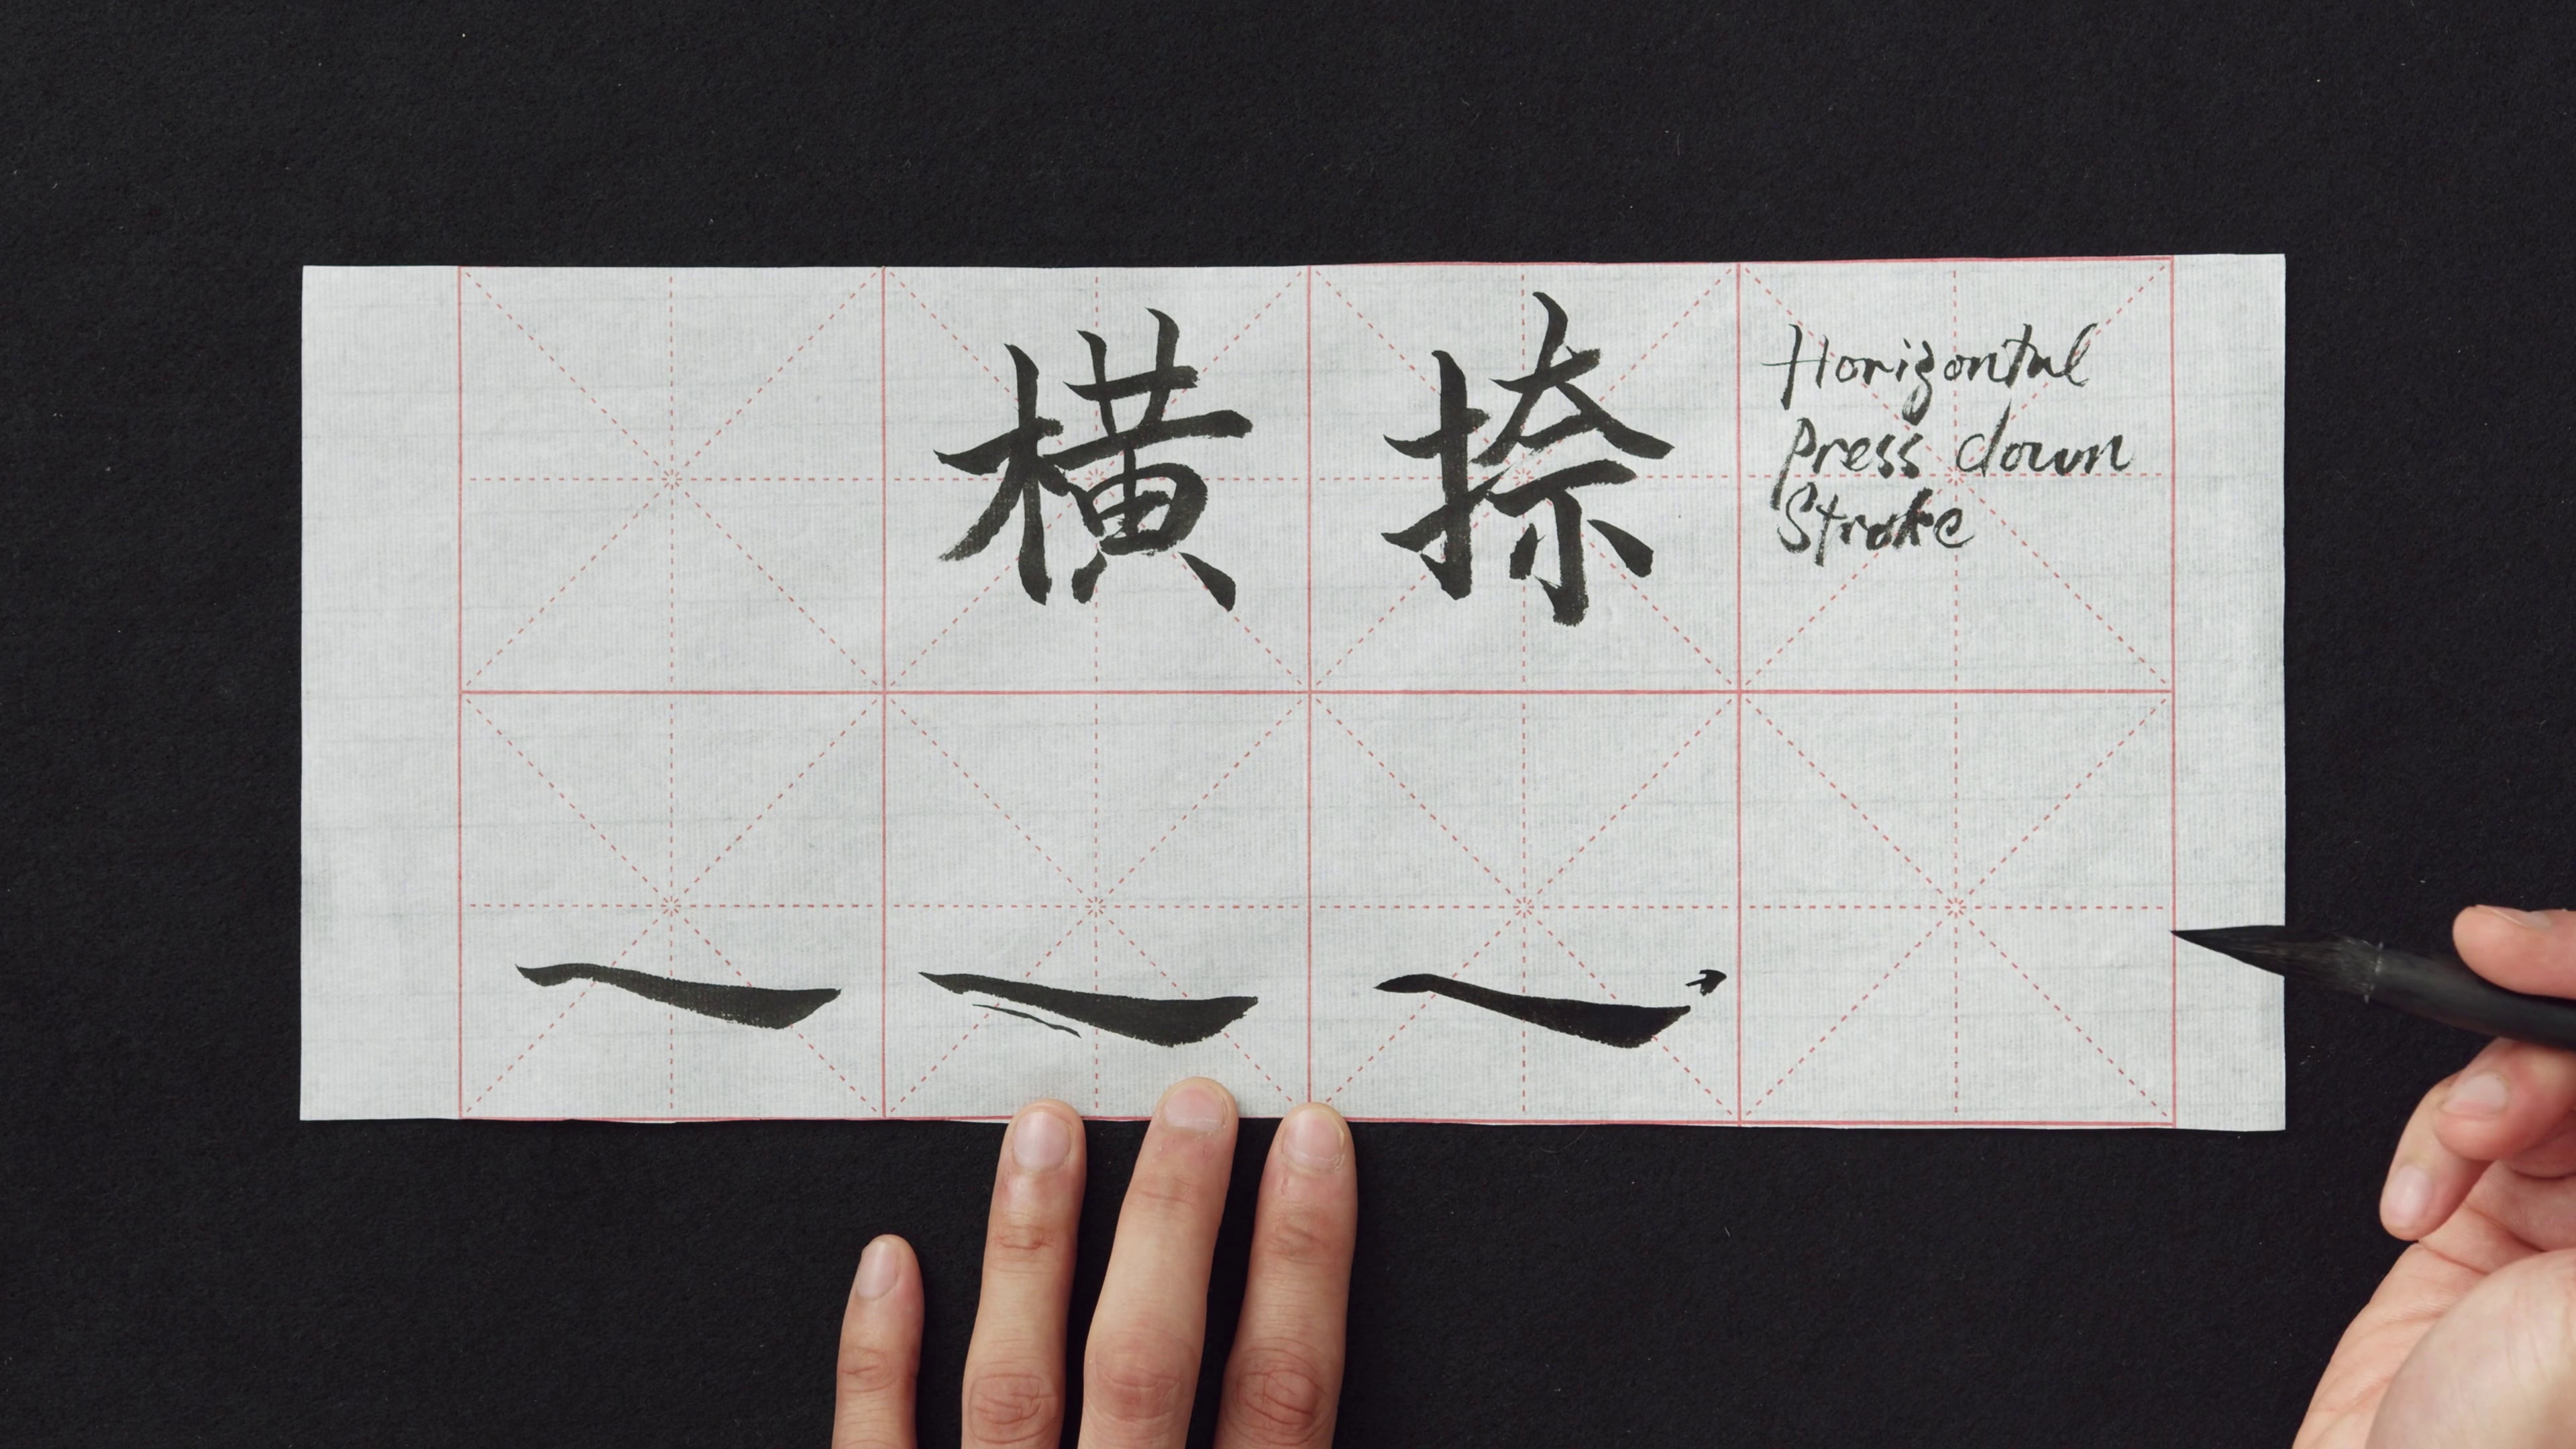 横捺
Horizontal
press down
Stroke